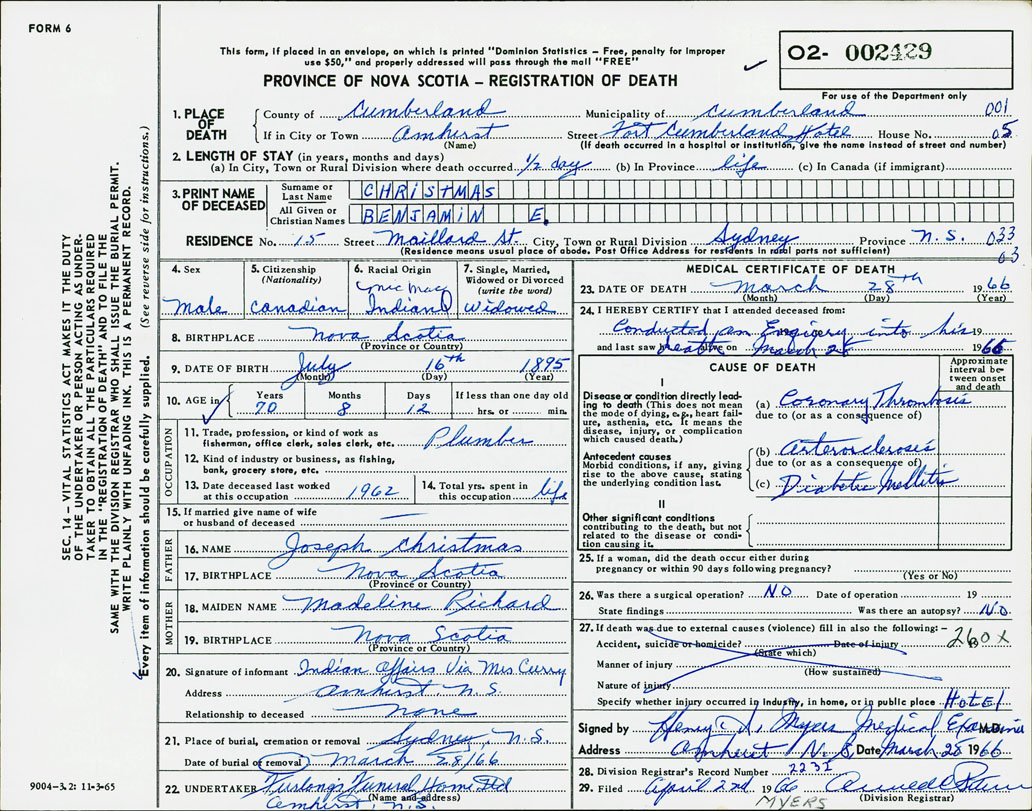 FORM 6
This form, if placed in an envelope, on which is printed "Dominion Statistics – Free, penalty for improper
use $50," and properly addressed will pass through the mail "FREE"
PROVINCE OF NOVA SCOTIA – REGISTRATION OF DEATH
O2- 002429
For use of the Department only
1. PLACE OF DEATH { County of Cumberland Municipality of Cumberland 001
If in City or Town Amherst Street Fort Cumberland Hotel House No. 05
(Name) (If death occurred in a hospital or institution, give the name instead of street and number)
2. LENGTH OF STAY (in years, months and days)
(a) In City, Town or Rural Division where death occurred 1/2 day (b) In Province life (c) In Canada (if immigrant)
3. PRINT NAME OF DECEASED
Surname or Last Name CHRISTMAS
All Given or Christian Names BENJAMIN E.
RESIDENCE No. 15 Street Maillard St. City, Town or Rural Division Sydney Province N.S. 033
(Residence means usual place of abode. Post Office Address for residents in rural parts not sufficient) 03
4. Sex
Male
5. Citizenship (Nationality)
Canadian
6. Racial Origin
Mic Mac
Indian
7. Single, Married, Widowed or Divorced (write the word)
Widowed
8. BIRTHPLACE Nova Scotia
(Province or Country)
9. DATE OF BIRTH July 16th 1895
(Month) (Day) (Year)
10. AGE in { Years Months Days If less than one day old
70 8 12 hrs. or min.
OCCUPATION
11. Trade, profession, or kind of work as
fisherman, office clerk, sales clerk, etc. Plumber
12. Kind of industry or business, as fishing,
bank, grocery store, etc.
13. Date deceased last worked
at this occupation 1962
14. Total yrs. spent in
this occupation life
15. If married give name of wife
or husband of deceased —
FATHER
16. NAME Joseph Christmas
17. BIRTHPLACE Nova Scotia
(Province or Country)
MOTHER
18. MAIDEN NAME Madeline Richard
19. BIRTHPLACE Nova Scotia
(Province or Country)
20. Signature of informant Indian Affairs Via Mrs Curry
Address Amherst N.S.
Relationship to deceased None
21. Place of burial, cremation or removal Sydney, N.S.
Date of burial or removal March 28/66
22. UNDERTAKER Furlong's Funeral Home Ltd
(Name and address)
Amherst, N.S.
MEDICAL CERTIFICATE OF DEATH
23. DATE OF DEATH March 28th 1966
(Month) (Day) (Year)
24. I HEREBY CERTIFY that I attended deceased from:
Conducted an Enquiry into his 19
and last saw death alive on March 28 1966
CAUSE OF DEATH
Approximate interval between onset and death
I
Disease or condition directly leading to death (This does not mean the mode of dying, e.g., heart failure, asthenia, etc. It means the disease, injury, or complication which caused death.)
(a) Coronary Thrombosis
due to (or as a consequence of)
Antecedent causes
Morbid conditions, if any, giving rise to the above cause, stating the underlying condition last.
(b) Arterosclerosis
due to (or as a consequence of)
(c) Diabetic Mellitis
II
Other significant conditions
contributing to the death, but not related to the disease or condition causing it.
25. If a woman, did the death occur either during
pregnancy or within 90 days following pregnancy?
(Yes or No)
26. Was there a surgical operation? NO Date of operation 19
State findings Was there an autopsy? No.
27. If death was due to external causes (violence) fill in also the following: – 260X
Accident, suicide or homicide? Date of injury 19
(State which)
Manner of injury
(How sustained)
Nature of injury
Specify whether injury occurred in industry, in home, or in public place Hotel
Signed by Henry Myers Medical Examiner M.D.
Address Amherst N.S. Date March 28 1966
28. Division Registrar's Record Number 2231
29. Filed April 2nd 1966
(Division Registrar)
MYERS
SEC. 14 – VITAL STATISTICS ACT MAKES IT THE DUTY
OF THE UNDERTAKER OR PERSON ACTING AS UNDER-
TAKER TO OBTAIN ALL THE PARTICULARS REQUIRED
IN THE "REGISTRATION OF DEATH" AND TO FILE THE
SAME WITH THE DIVISION REGISTRAR WHO SHALL ISSUE THE BURIAL PERMIT.
WRITE PLAINLY WITH UNFADING INK. THIS IS A PERMANENT RECORD.
Every item of information should be carefully supplied. (See reverse side for instructions.)
9004-3.2: 11-3-65